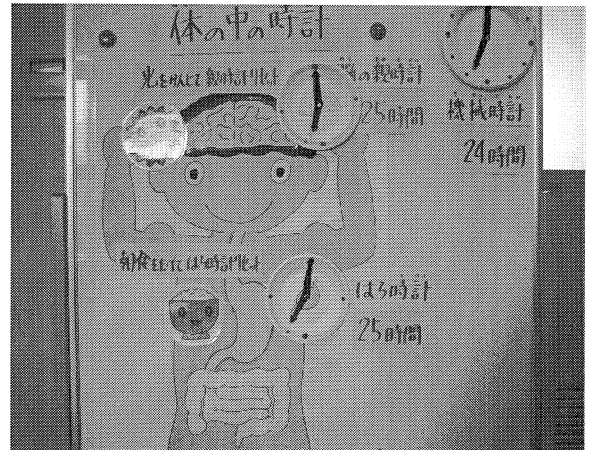 体の中の時計
光をかんじて 親時計リセット
脳の親時計
25時間
機械時計
24時間
朝食をたべて はら時計リセット
はら時計
25時間